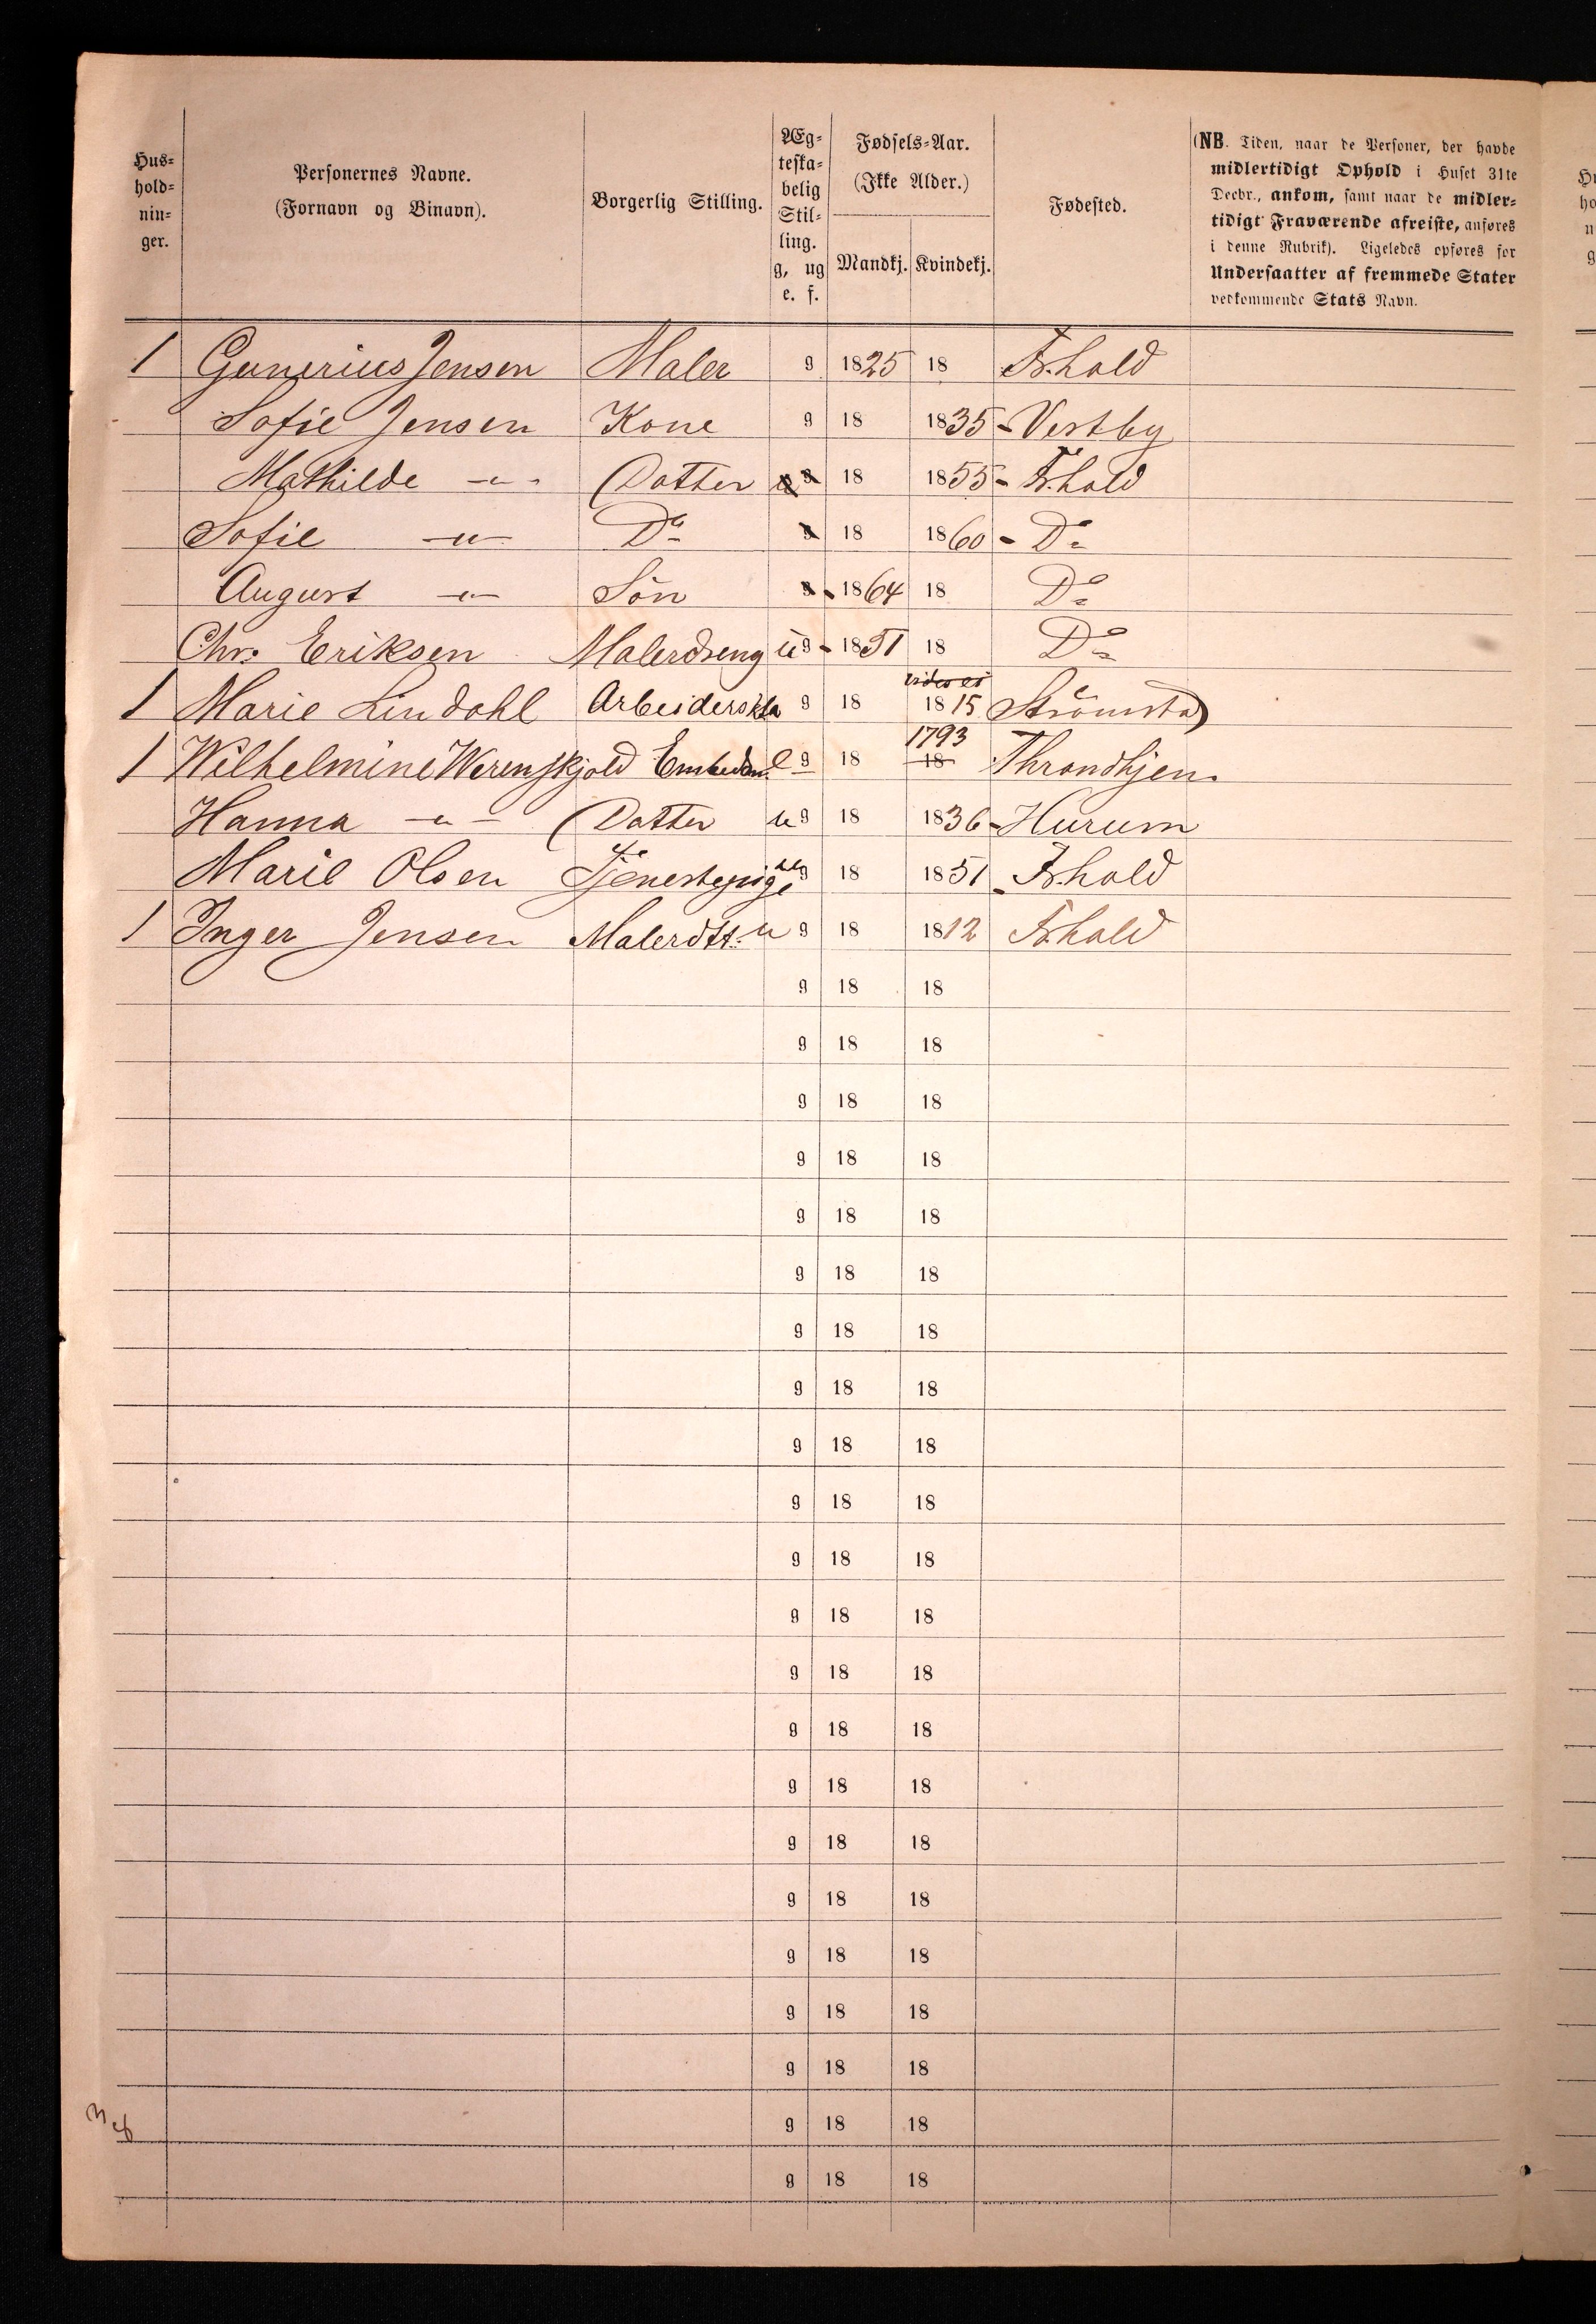 Hus=
hold=
nin=
ger.
Personernes Navne.
(Fornavn og Binavn).
Borgerlig Stilling.
Æg=
teska=
belig
Stil=
ling.
g, ug
e. f.
Fødsels=Aar.
(Ikke Alder.)
Mandkj. Kvindekj.
Fødested.
(NB. Tiden, naar de Personer, der havde
midlertidigt Ophold i Huset 31te
Decbr., ankom, samt naar de midler=
tidigt Fraværende afreiste, anføres
i denne Rubrik). Ligeledes opføres for
Undersaatter af fremmede Stater
vedkommende Stats Navn.
1 Gunerius Jensen Maler g 1825 18 Frhald
Sofie Jensen Kone g 18 1835 - Vestby
Mathilde -"- Datter g 18 1855 - Frhald
Sofie -"- Do g 18 1860 - Do
August -"- Sön g - 1864 18 Do
Chr. Eriksen Malerdreng u g - 1851 18 Do
1 Marie Lindahl g 18 1815 Strömstad
1793
1 Wilhelmine Werenskjold e g 18 18 Throndhjem
Hanna -"- Datter u g 18 1836 - Hurum
Marie Olsen Tjenestepige g 18 1851 Frhald
1 Inger Jensen Malerdtt. u g 18 1812 Frhald
g 18 18
g 18 18
g 18 18
g 18 18
g 18 18
g 18 18
g 18 18
g 18 18
g 18 18
g 18 18
g 18 18
g 18 18
g 18 18
g 18 18
g 18 18
g 18 18
g 18 18
g 18 18
g 18 18
g 18 18
g 18 18
g 18 18